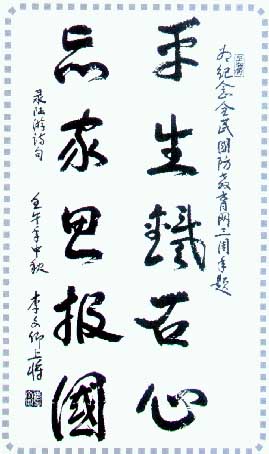 为纪念全民國防教育网周年题
平生鐵石心
忘家思报國
录陆游诗句
壬午年中秋 李文卿上将